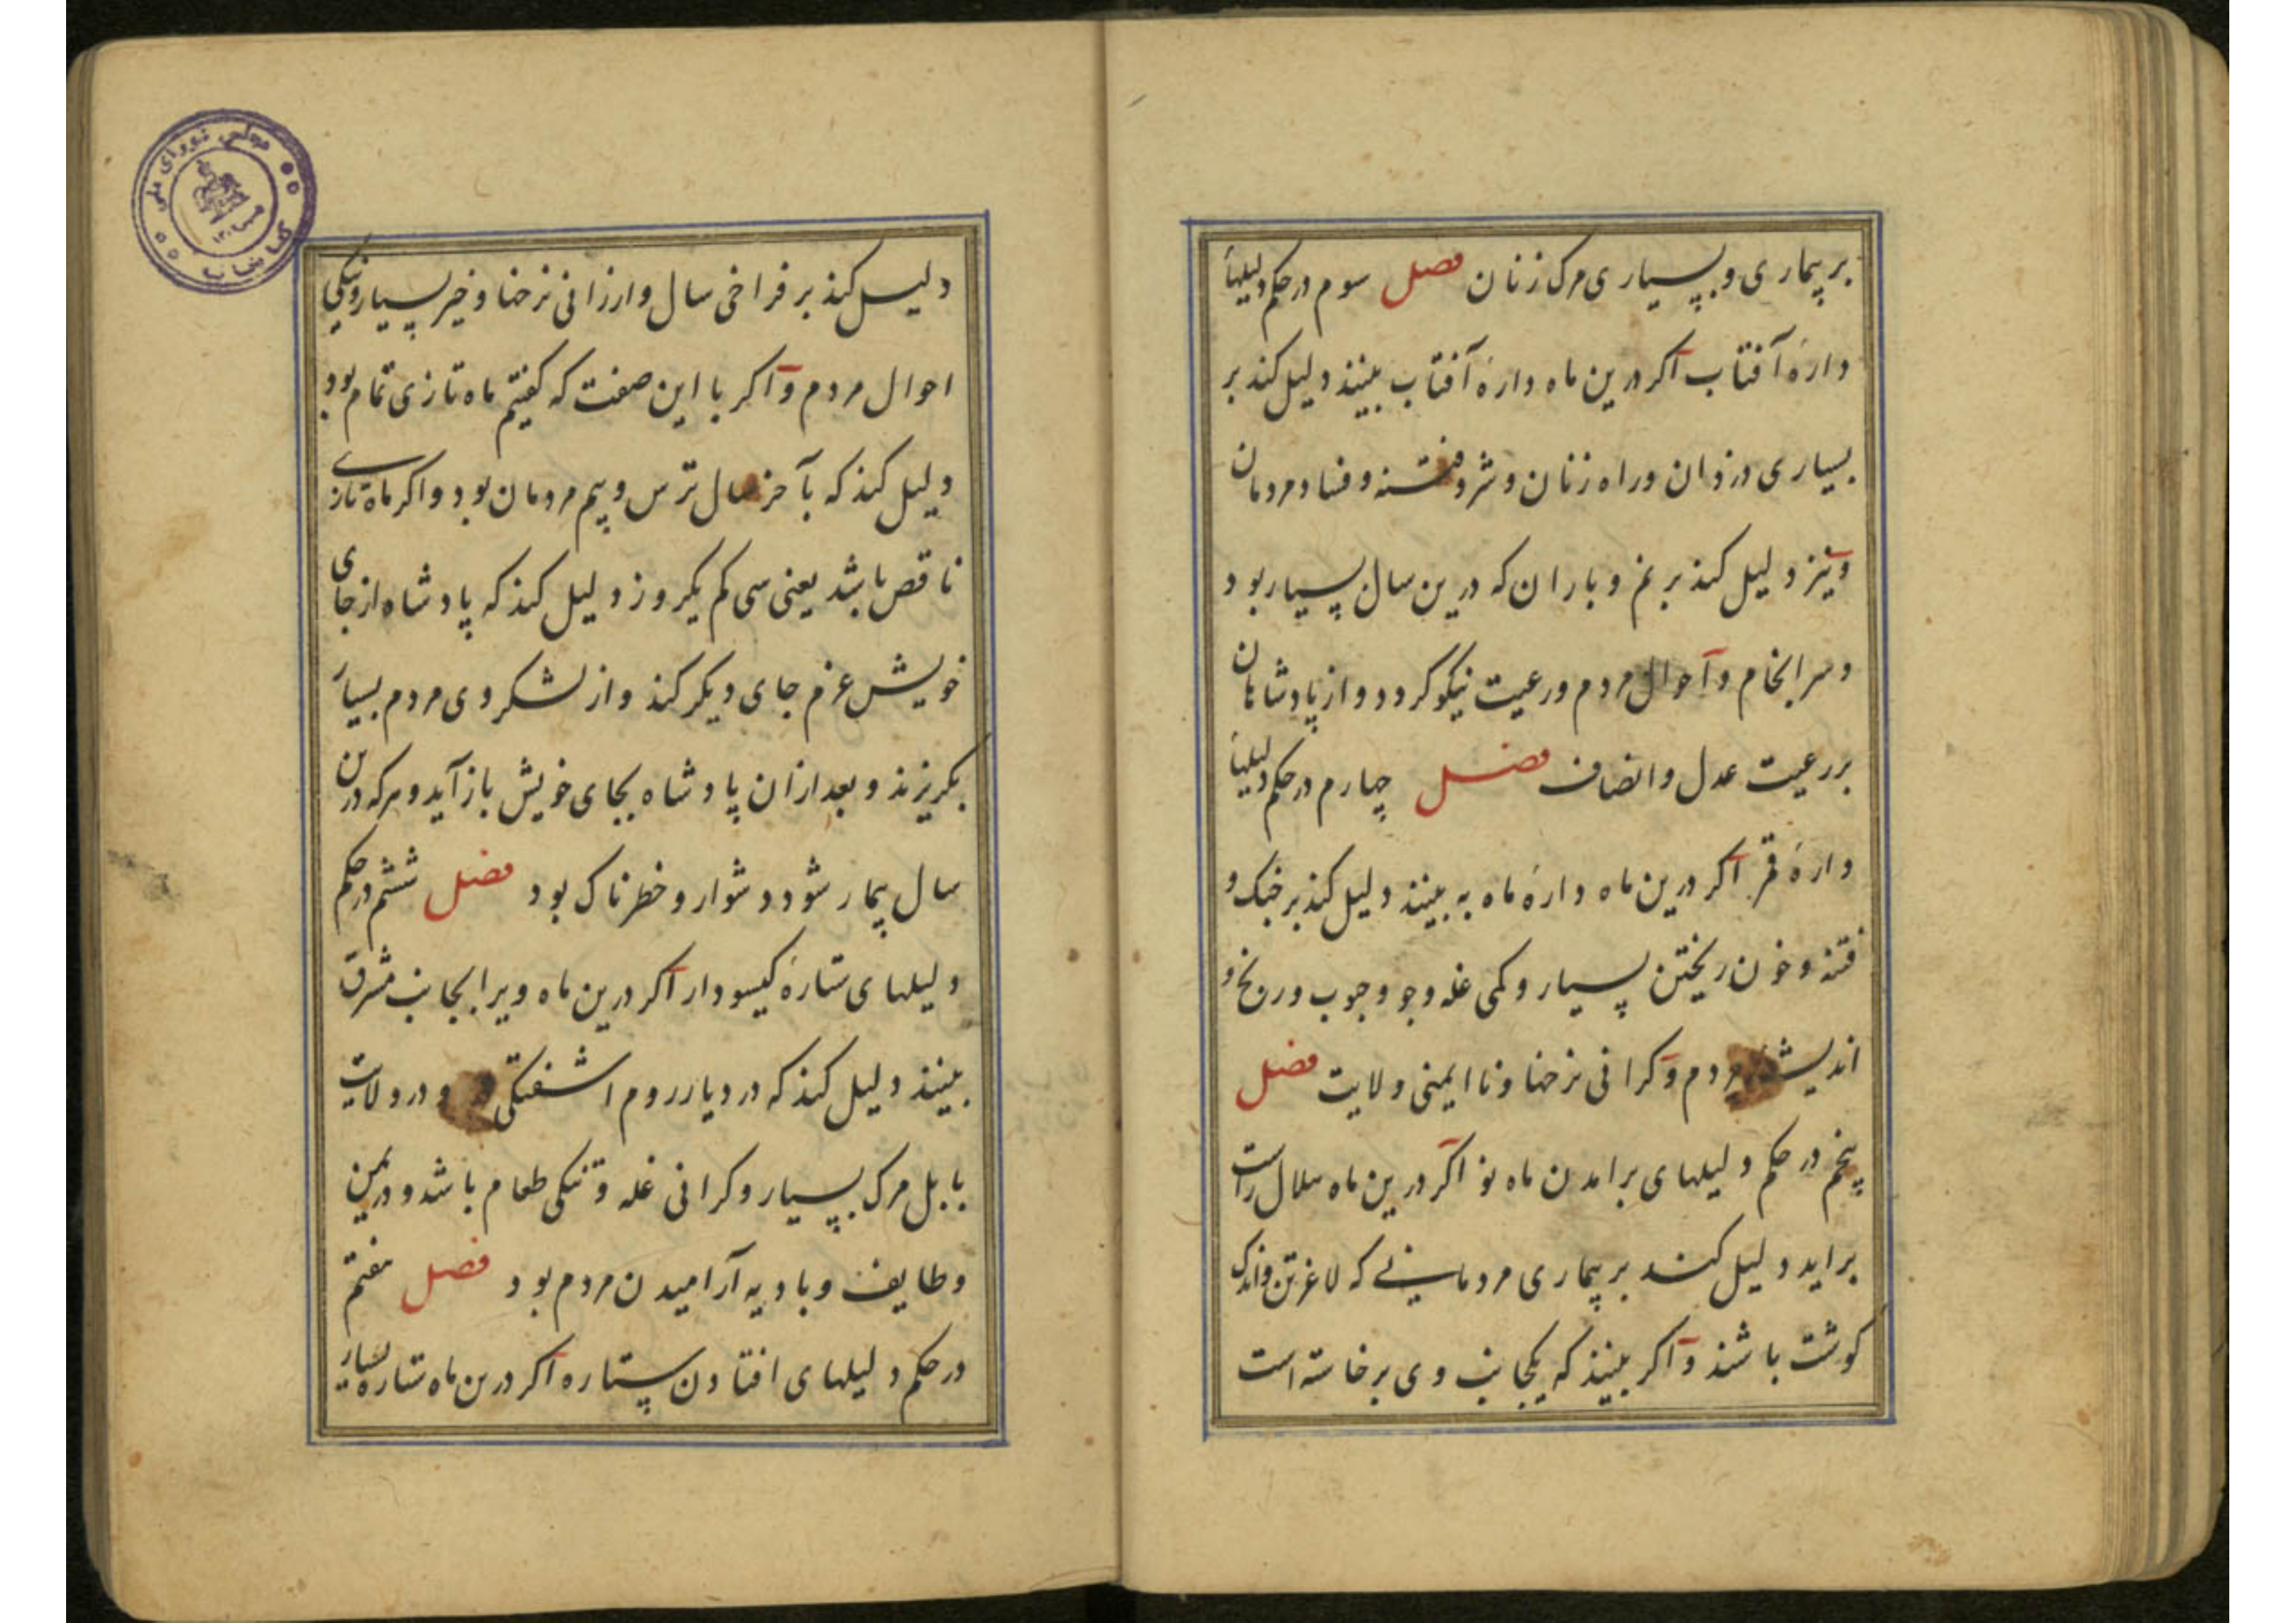 بر بیماری و بسیاری مرک زنان فصل سوم در حکم دلیلهاء
دارهٔ آفتاب اکر درین ماه دارهٔ آفتاب بینند دلیل کند بر
بسیاری دزدان و راه زنان و شر و فتنه و فساد مردمان
و نیز دلیل کند بر نم و باران که درین سال بسیار بود
و سرانجام و احوال مردم و رعیت نیکو کردد و از پادشاهان
بر رعیت عدل و انصاف فصل چهارم در حکم دلیلهاء
دارهٔ قمر اکر درین ماه دارهٔ ماه به بینند دلیل کند بر جنک و
فتنه و خون ریختن بسیار و کمی غله و جو و حبوب و رنج و
اندیشه مردم و کرانی نرخها و نا ایمنی ولایت فصل
پنجم در حکم دلیلهای برامدن ماه نو اکر درین ماه هلال راست
براید دلیل کند بر بیماری مردمانی که لاغرتن و اندک
کوشت باشند و اکر بینند که یکجانب وی برخاسته است
دلیل کند بر فراخی سال و ارزانی نرخها و خیر بسیار و نیکی
احوال مردم و اکر با این صفت که کفتیم ماه تازی تمام بود
دلیل کند که بآخر سال ترس و بیم مردمان بود و اکر ماه تازی
ناقص باشد یعنی سی کم یکروز دلیل کند که پادشاه از جای
خویش عزم جای دیکر کند و از لشکر وی مردم بسیار
بکریزند و بعد ازان پادشاه بجای خویش باز آید و هرکه درین
سال بیمار شود دشوار و خطرناک بود فصل ششم در حکم
دلیلهای ستارهٔ کیسودار اکر درین ماه ویرا بجانب مشرق
بینند دلیل کند که در دیار روم اشفتکی و در ولایت
بابل مرک بسیار و کرانی غله و تنکی طعام باشد و در یمن
و طایف و بادیه آرامیدن مردم بود فصل هفتم
در حکم دلیلهای افتادن ستاره اکر درین ماه ستاره بسیار
مجلس شورای ملی
کتابخانه